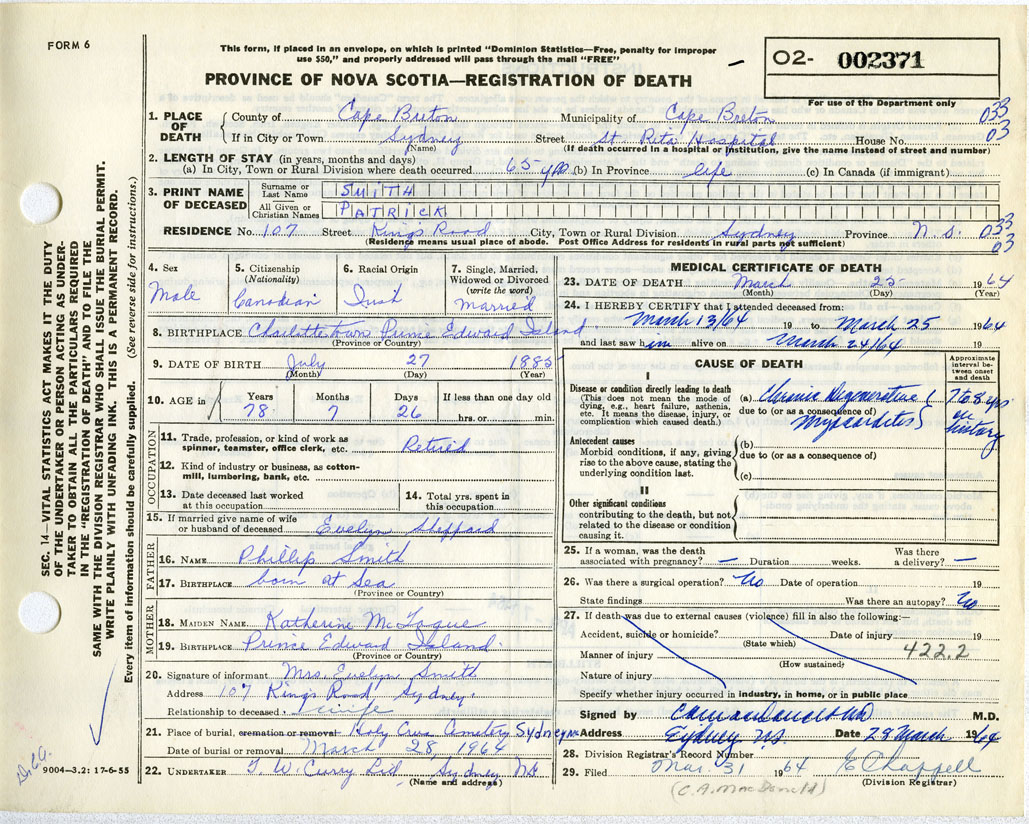 FORM 6
This form, if placed in an envelope, on which is printed "Dominion Statistics—Free, penalty for improper
use $50," and properly addressed will pass through the mail "FREE"
PROVINCE OF NOVA SCOTIA—REGISTRATION OF DEATH
02- 002371
For use of the Department only
1. PLACE OF DEATH
County of Cape Breton Municipality of Cape Breton 033
If in City or Town Sydney Street St. Rita Hospital House No. 03
(Name) (If death occurred in a hospital or institution, give the name instead of street and number)
2. LENGTH OF STAY (in years, months and days)
(a) In City, Town or Rural Division where death occurred 65 yrs (b) In Province life (c) In Canada (if immigrant)
3. PRINT NAME OF DECEASED
Surname or Last Name SMITH
All Given or Christian Names PATRICK
RESIDENCE No. 107 Street Kings Road City, Town or Rural Division Sydney Province N.S. 033
(Residence means usual place of abode. Post Office Address for residents in rural parts not sufficient) 03
4. Sex Male
5. Citizenship (Nationality) Canadian
6. Racial Origin
7. Single, Married, Widowed or Divorced (write the word) Married
8. BIRTHPLACE Charlottetown Prince Edward Island
(Province or Country)
9. DATE OF BIRTH July 27 1885
(Month) (Day) (Year)
10. AGE in Years 78 Months 7 Days 26 If less than one day old hrs. or min.
OCCUPATION
11. Trade, profession, or kind of work as spinner, teamster, office clerk, etc. Retired
12. Kind of industry or business, as cotton-mill, lumbering, bank, etc.
13. Date deceased last worked at this occupation
14. Total yrs. spent in this occupation
15. If married give name of wife or husband of deceased Evelyn Sheppard
FATHER
16. NAME Phillip Smith
17. BIRTHPLACE born at Sea
(Province or Country)
MOTHER
18. MAIDEN NAME Katherine
19. BIRTHPLACE Prince Edward Island
(Province or Country)
20. Signature of informant Mrs. Evelyn Smith
Address 107 Kings Road Sydney
Relationship to deceased wife
21. Place of burial, cremation or removal Holy Cross Cemetery Sydney NS
Date of burial or removal March 28, 1964
22. UNDERTAKER T. W. Curry Ltd Sydney NS
(Name and address)
MEDICAL CERTIFICATE OF DEATH
23. DATE OF DEATH March 25 1964
(Month) (Day) (Year)
24. I HEREBY CERTIFY that I attended deceased from:
March 13/64 19 to March 25 1964
and last saw him alive on March 24/64 19
CAUSE OF DEATH
Approximate interval between onset and death
I
Disease or condition directly leading to death
(This does not mean the mode of dying, e.g., heart failure, asthenia, etc. It means the disease, injury, or complication which caused death.)
(a) Chronic Degenerative
due to (or as a consequence of)
Myocarditis
7 or 8 yrs
on
history
Antecedent causes
Morbid conditions, if any, giving rise to the above cause, stating the underlying condition last.
(b)
due to (or as a consequence of)
(c)
II
Other significant conditions
contributing to the death, but not related to the disease or condition causing it.
25. If a woman, was the death associated with pregnancy? — Duration weeks. Was there a delivery? —
26. Was there a surgical operation? No Date of operation 19
State findings Was there an autopsy? No
27. If death was due to external causes (violence) fill in also the following:—
Accident, suicide or homicide? Date of injury 19
(State which)
Manner of injury 422.2
(How sustained)
Nature of injury
Specify whether injury occurred in industry, in home, or in public place
Signed by M.D.
Address Sydney N.S. Date 28 March 1964
28. Division Registrar's Record Number
29. Filed Mar. 31 1964 E Chappell
(C. A. MacDonald) (Division Registrar)
SEC. 14—VITAL STATISTICS ACT MAKES IT THE DUTY
OF THE UNDERTAKER OR PERSON ACTING AS UNDER-
TAKER TO OBTAIN ALL THE PARTICULARS REQUIRED
IN THE "REGISTRATION OF DEATH" AND TO FILE THE
SAME WITH THE DIVISION REGISTRAR WHO SHALL ISSUE THE BURIAL PERMIT.
WRITE PLAINLY WITH UNFADING INK. THIS IS A PERMANENT RECORD.
Every item of information should be carefully supplied. (See reverse side for instructions.)
9004—3.2: 17-6-55